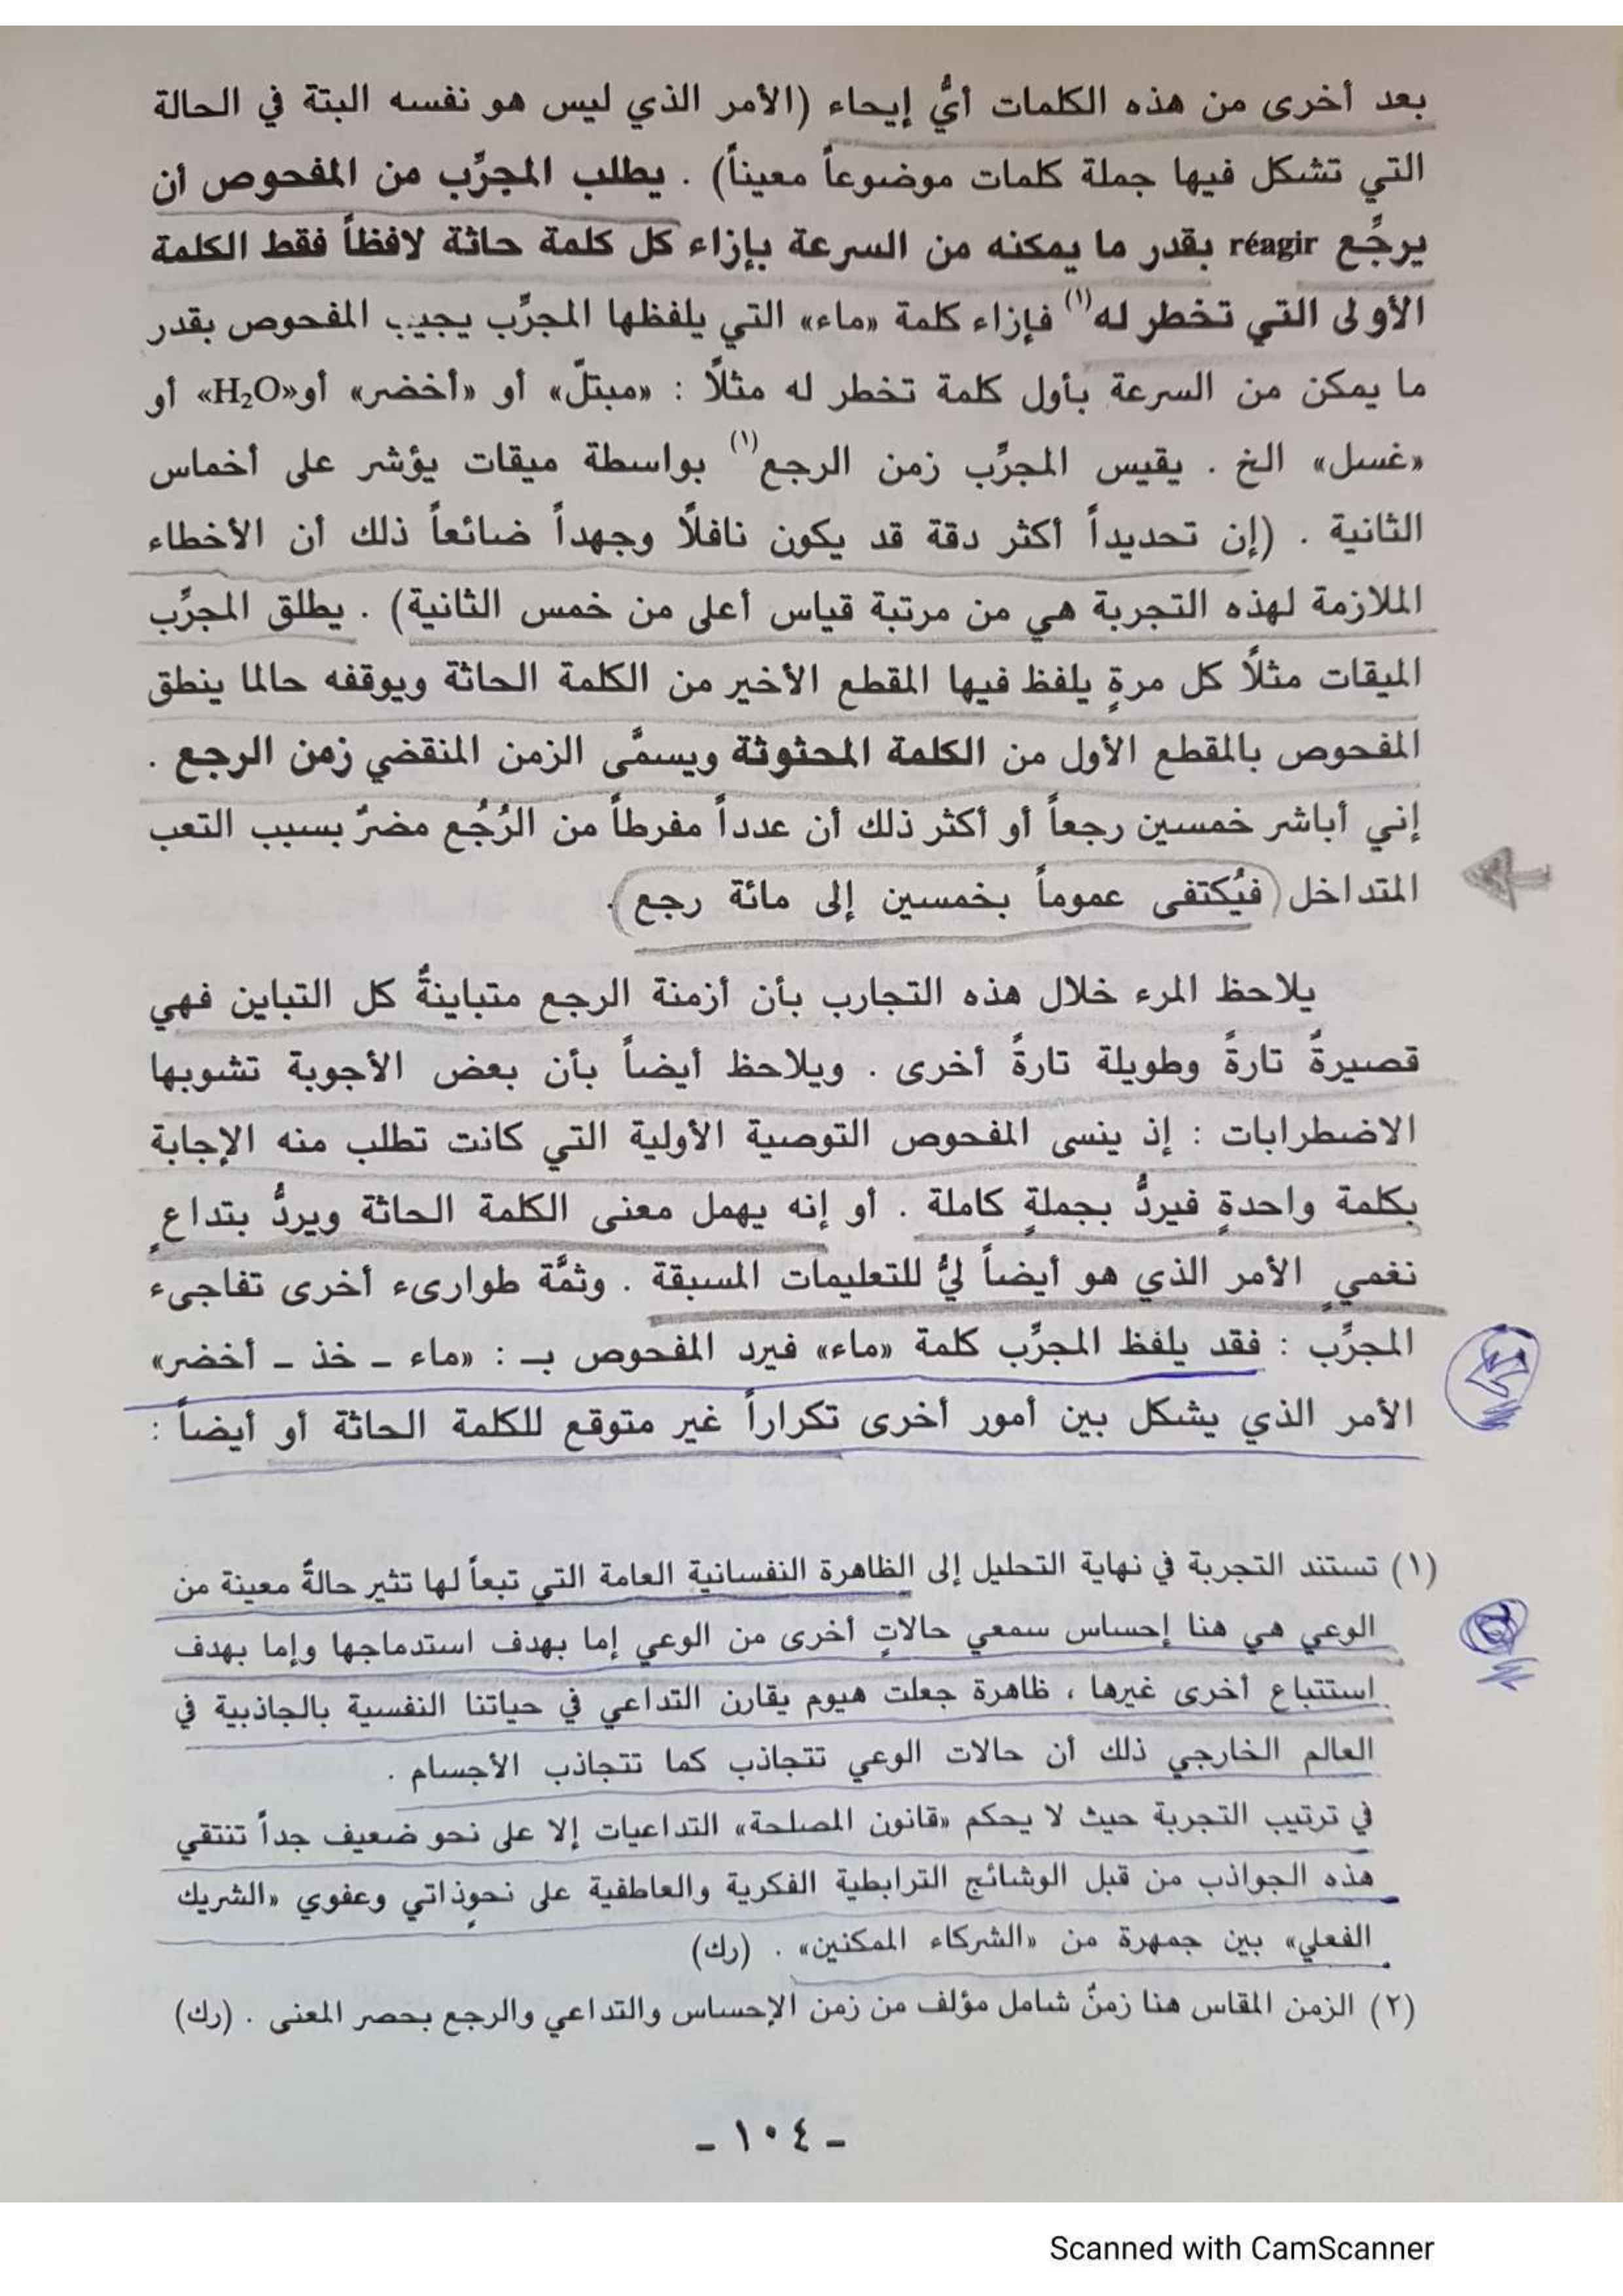 بعد أخرى من هذه الكلمات أيُّ إيحاء (الأمر الذي ليس هو نفسه البتة في الحالة
التي تشكل فيها جملة كلمات موضوعاً معيناً) . يطلب المجرِّب من المفحوص أن
يرجِّع réagir بقدر ما يمكنه من السرعة بإزاء كل كلمة حاثة لافظاً فقط الكلمة
الأولى التي تخطر له(١) فإزاء كلمة «ماء» التي يلفظها المجرِّب يجيب المفحوص بقدر
ما يمكن من السرعة بأول كلمة تخطر له مثلًا : «مبتلّ» أو «أخضر» أو«H₂O» أو
«غسل» الخ . يقيس المجرِّب زمن الرجع(١) بواسطة ميقات يؤشر على أخماس
الثانية . (إن تحديداً أكثر دقة قد يكون نافلًا وجهداً ضائعاً ذلك أن الأخطاء
الملازمة لهذه التجربة هي من مرتبة قياس أعلى من خمس الثانية) . يطلق المجرِّب
الميقات مثلًا كل مرةٍ يلفظ فيها المقطع الأخير من الكلمة الحاثة ويوقفه حالما ينطق
المفحوص بالمقطع الأول من الكلمة المحثوثة ويسمَّى الزمن المنقضي زمن الرجع .
إني أباشر خمسين رجعاً أو أكثر ذلك أن عدداً مفرطاً من الرُجُع مضرٌ بسبب التعب
المتداخل (فيُكتفى عموماً بخمسين إلى مائة رجع) .
يلاحظ المرء خلال هذه التجارب بأن أزمنة الرجع متباينةٌ كل التباين فهي
قصيرةٌ تارةً وطويلة تارةً أخرى . ويلاحظ أيضاً بأن بعض الأجوبة تشوبها
الاضطرابات : إذ ينسى المفحوص التوصية الأولية التي كانت تطلب منه الإجابة
بكلمة واحدةٍ فيردُّ بجملةٍ كاملة . أو إنه يهمل معنى الكلمة الحاثة ويردُّ بتداعٍ
نغميٍ الأمر الذي هو أيضاً ليٌّ للتعليمات المسبقة . وثمَّة طوارىء أخرى تفاجىء
المجرِّب : فقد يلفظ المجرِّب كلمة «ماء» فيرد المفحوص بـ : «ماء – خذ – أخضر»
الأمر الذي يشكل بين أمور أخرى تكراراً غير متوقع للكلمة الحاثة أو أيضاً :
(١) تستند التجربة في نهاية التحليل إلى الظاهرة النفسانية العامة التي تبعاً لها تثير حالةٌ معينة من
الوعي هي هنا إحساس سمعي حالاتٍ أخرى من الوعي إما بهدف استدماجها وإما بهدف
استتباع أخرى غيرها ، ظاهرة جعلت هيوم يقارن التداعي في حياتنا النفسية بالجاذبية في
العالم الخارجي ذلك أن حالات الوعي تتجاذب كما تتجاذب الأجسام .
في ترتيب التجربة حيث لا يحكم «قانون المصلحة» التداعيات إلا على نحو ضعيف جداً تنتقي
هذه الجواذب من قبل الوشائج الترابطية الفكرية والعاطفية على نحوٍذاتي وعفوي «الشريك
الفعلي» بين جمهرة من «الشركاء الممكنين» . (رك)
(٢) الزمن المقاس هنا زمنٌ شامل مؤلف من زمن الإحساس والتداعي والرجع بحصر المعنى . (رك)
– ١٠٤ –
Scanned with CamScanner